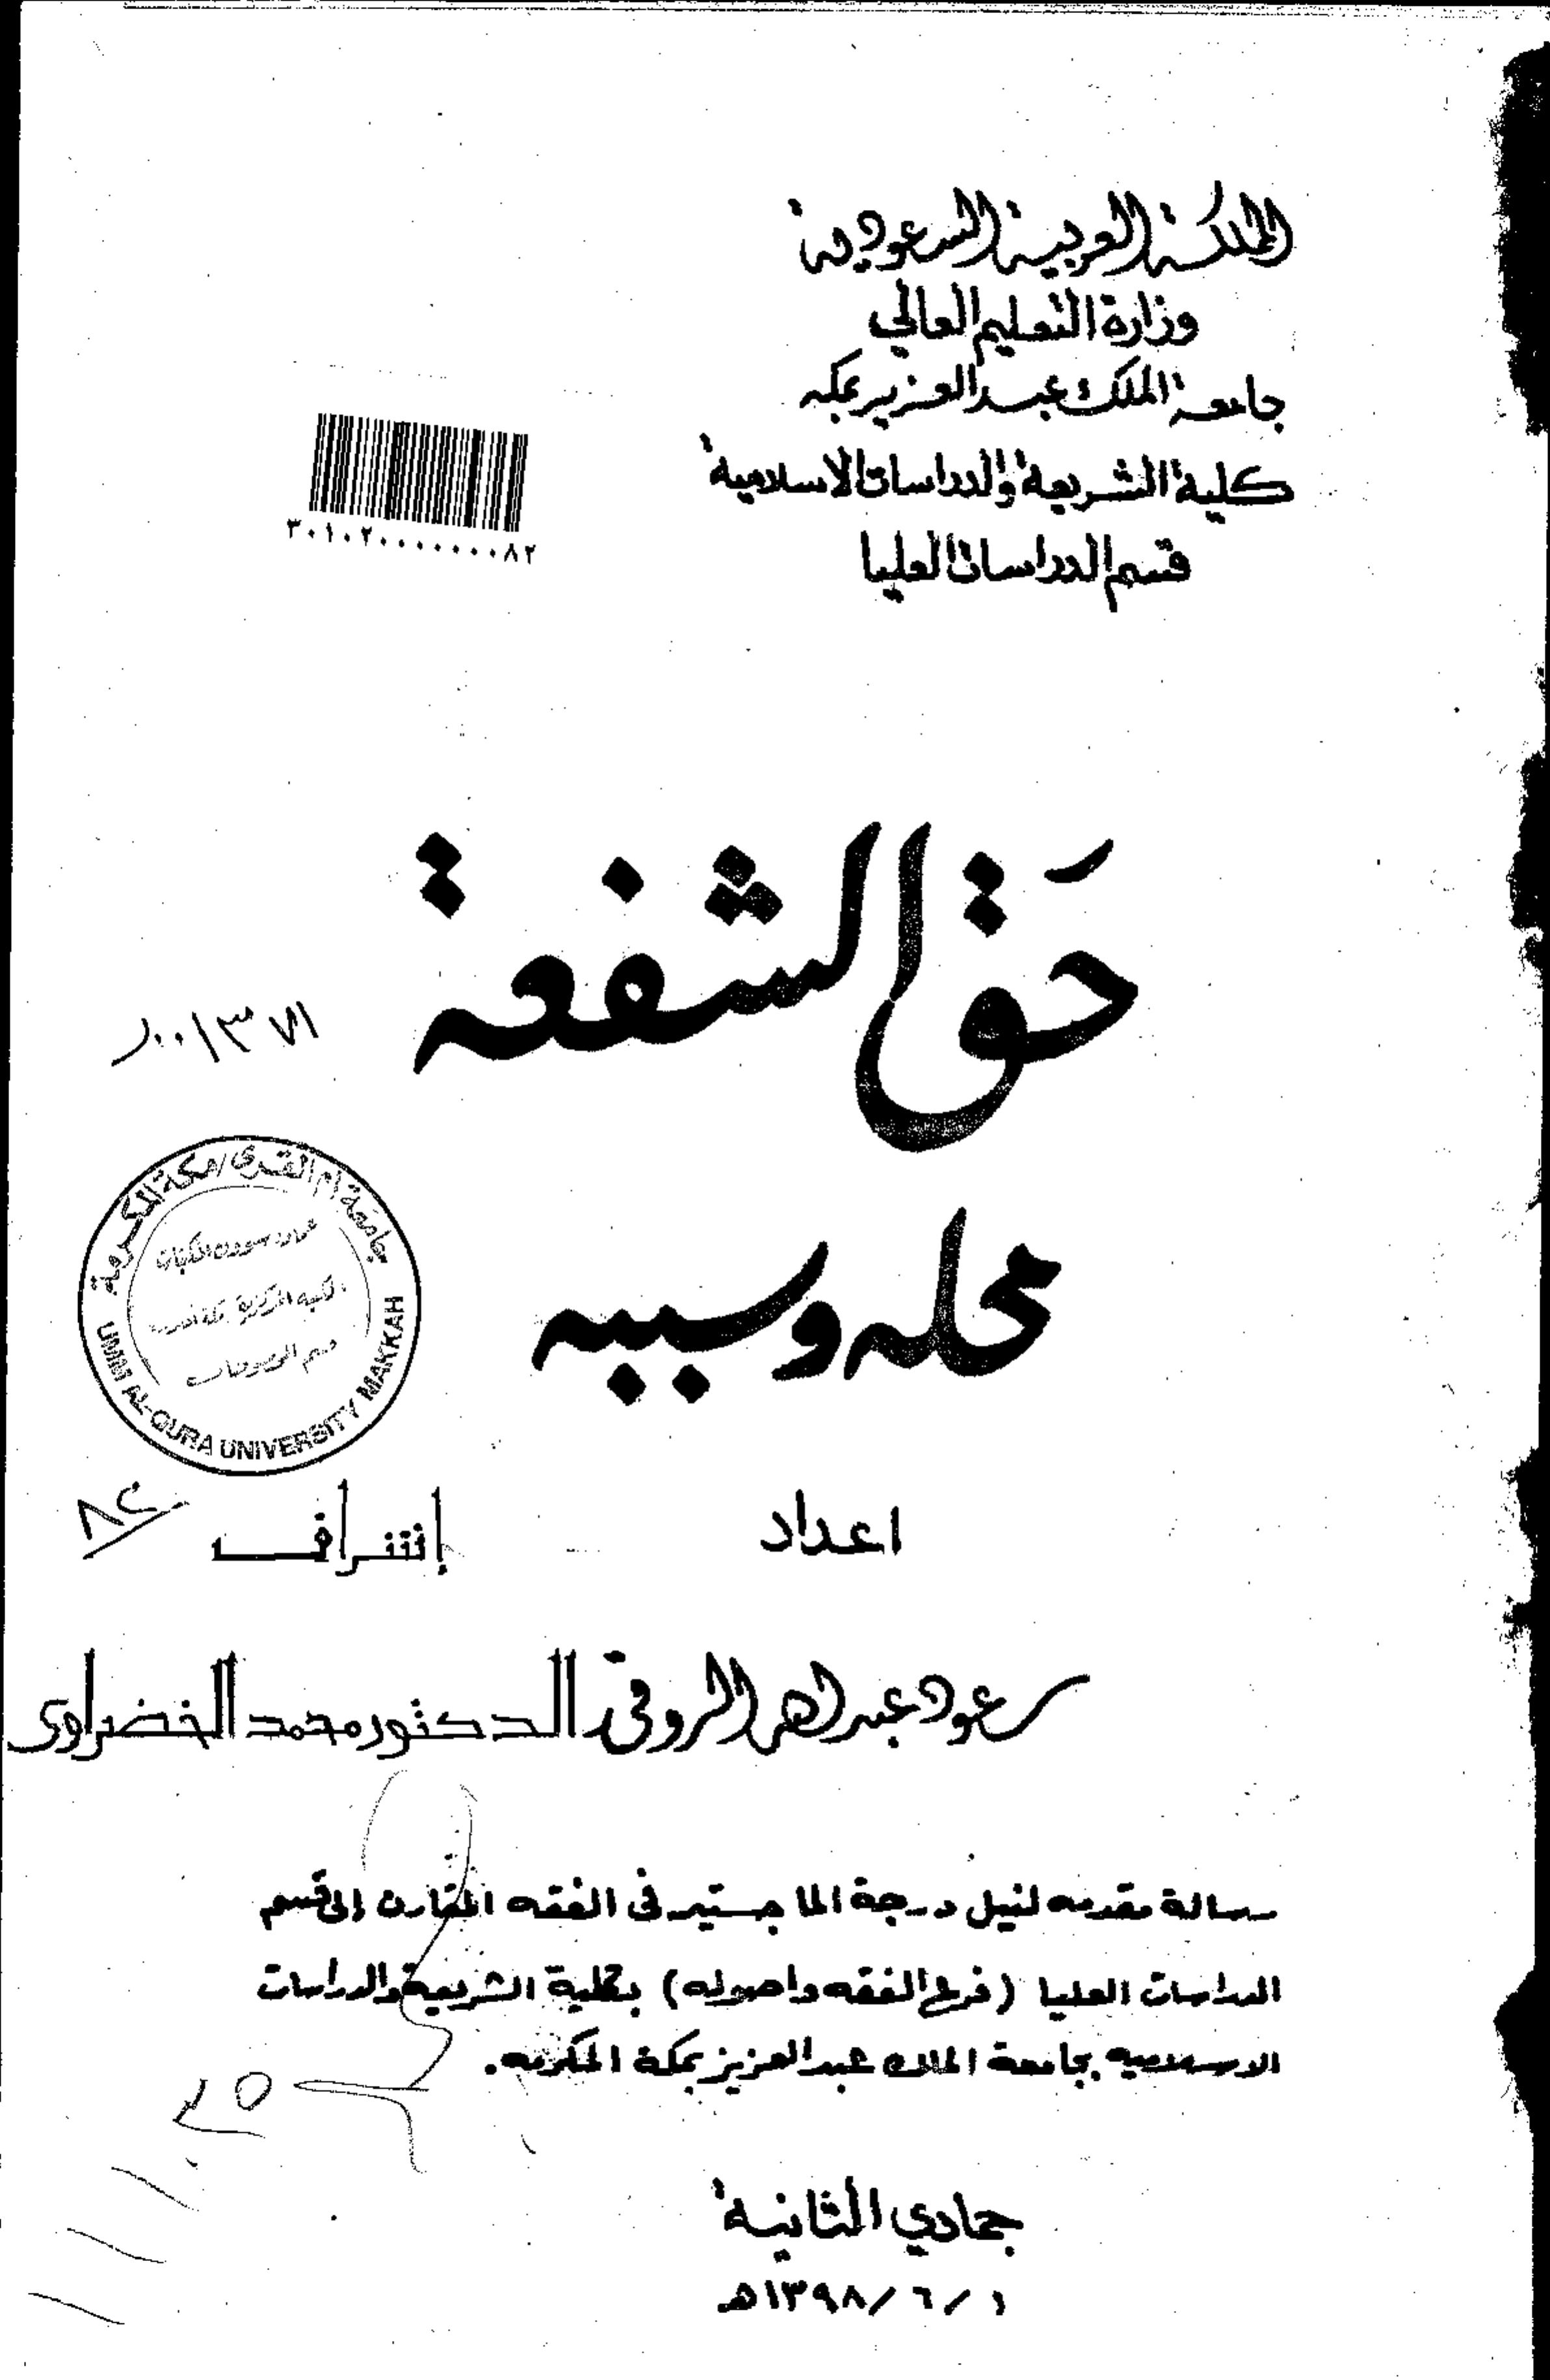 المملكة العربية السعودية
وزارة التعليم العالي
جامعة الملك عبد العزيز بمكه
كلية الشريعة والدراسات الاسلامية
قسم الدراسات العليا
٣٠١٠٢٠٠٠٠٠٠٠٨٢
حَق الشفعة
٠٠١٣٧١
محله وسببه
جامعة أم القرى / مكة المكرمة
UMM AL-QURA UNIVERSITY MAKKAH
٨٢
اعداد
إشراف
سعود عبدالله الروقي
الدكتور محمد الخضراوى
رسالة مقدمه لنيل درجة الماجستير فى الفقه المقارن إلى قسم
الدراسات العليا (فرع الفقه واصوله) بكلية الشريعة والدراسات
الاسلاميه بجامعة الملك عبد العزيز بمكة المكرمه.
جمادي الثانية
١ / ٦ / ١٣٩٨ه